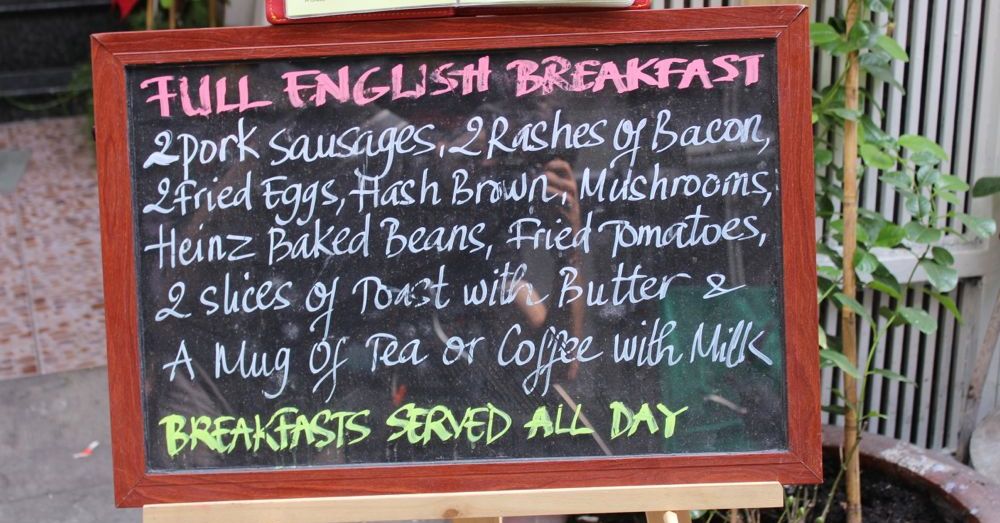 FULL ENGLISH BREAKFAST
2 Pork Sausages, 2 Rashes of Bacon,
2 Fried Eggs, Hash Brown, Mushrooms,
Heinz Baked Beans, Fried Tomatoes,
2 slices of Toast with Butter &
A Mug Of Tea or Coffee with Milk
BREAKFASTS SERVED ALL DAY